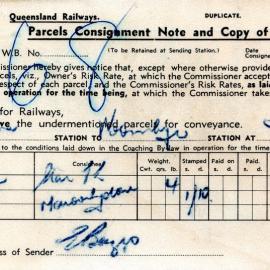 Queensland Railways. DUPLICATE.
Parcels Consignment Note and Copy of
W.B. No. (To be Retained at Sending Station.) Date
Consigne
issioner hereby gives notice that, except where otherwise provide
rcels, viz., Owner's Risk Rate, at which the Commissioner accept
espect of each parcel and the Commissioner's Risk Rates, as laid
operation for the time being, at which the Commissioner take
for Railways,
ve the undermentioned parcels for conveyance.
STATION TO STATION
to the conditions laid down in the Coaching By-law in operation for the ti
Consignee Weight. Stamped Paid on Paid
Cwt. qrs. lb. s. d. s. d. s.
4 1/10
ss of Sender